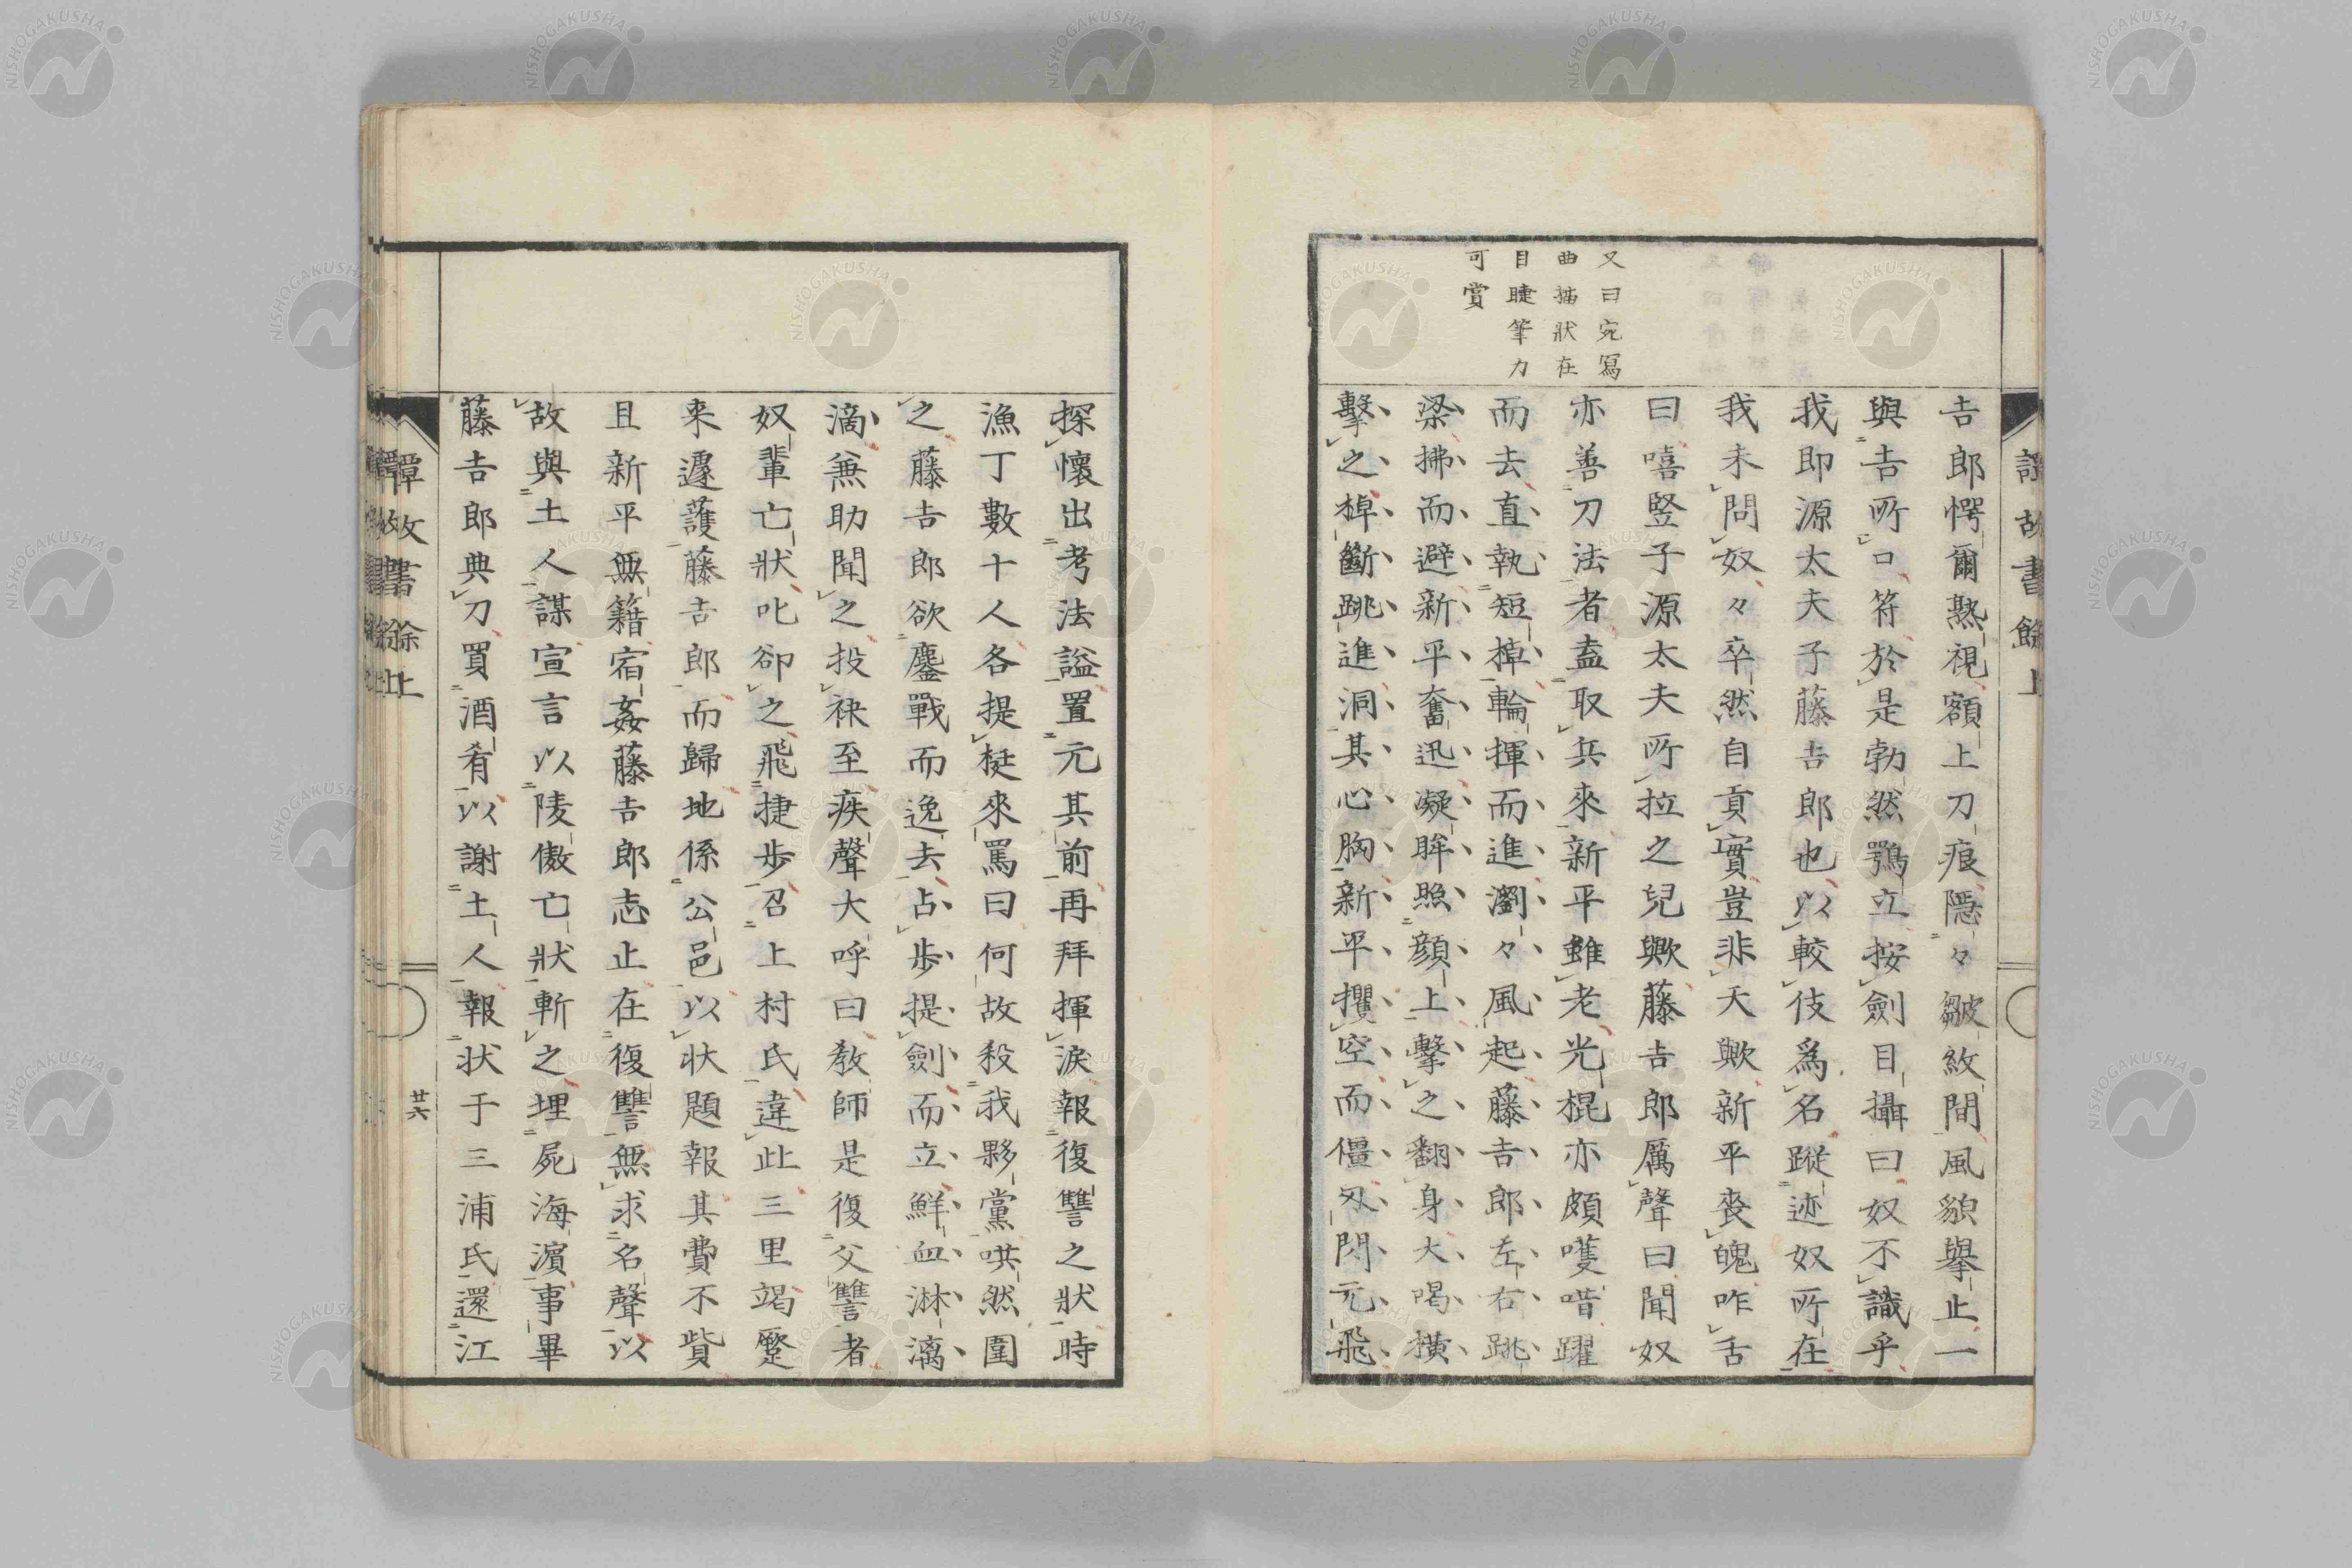 又曰宛寫
曲描狀在
目睫筆力
可賞
吉郎愕爾熟視額上刀痕隱々皺紋間風貌擧止一
與吉所口符於是勃然鶚立按劍目攝曰奴不識乎
我即源太夫子藤吉郎也以較伎爲名蹤迹奴所在
我未問奴々卒然自貢實豈非天歟新平喪魄咋舌
曰嘻竪子源太夫所拉之兒與歟藤吉郎厲聲曰聞奴
亦善刀法者盍取兵來新平雖老光棍亦頗嘆唶躍
而去直執短棹輪揮而進瀏々風起藤吉郎左右跳
梁拂而避新平奮迅凝眸照顔上擊之翻身大喝横
擊之棹斷跳進洞其心胸新平攫空而僵刄閃元飛
探懷出考法謚置元其前再拜揮淚報復讐之狀時
漁丁數十人各提梃來罵曰何故殺我夥黨哄然圍
之藤吉郎欲鏖戰而逸去占步提劍而立鮮血淋漓
滴兼助聞之投袂至疾聲大呼曰教師是復父讐者
奴輩亡狀叱卻之飛捷步召上村氏違此三里竭蹷
来遽護藤吉郎而歸地係公邑以狀題報其費不貲
且新平無籍宿姦藤吉郎志止在復讐無求名聲以
故與土人謀宣言以陵傲亡狀斬之埋屍海濵事畢
藤吉郎典刀買酒肴以謝土人報状于三浦氏還江
譚故書餘上
廿六